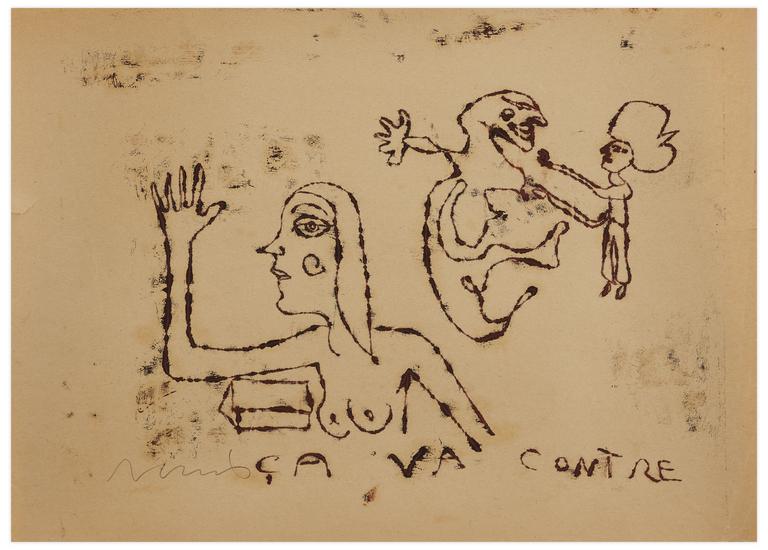 ÇA VA CONTRE